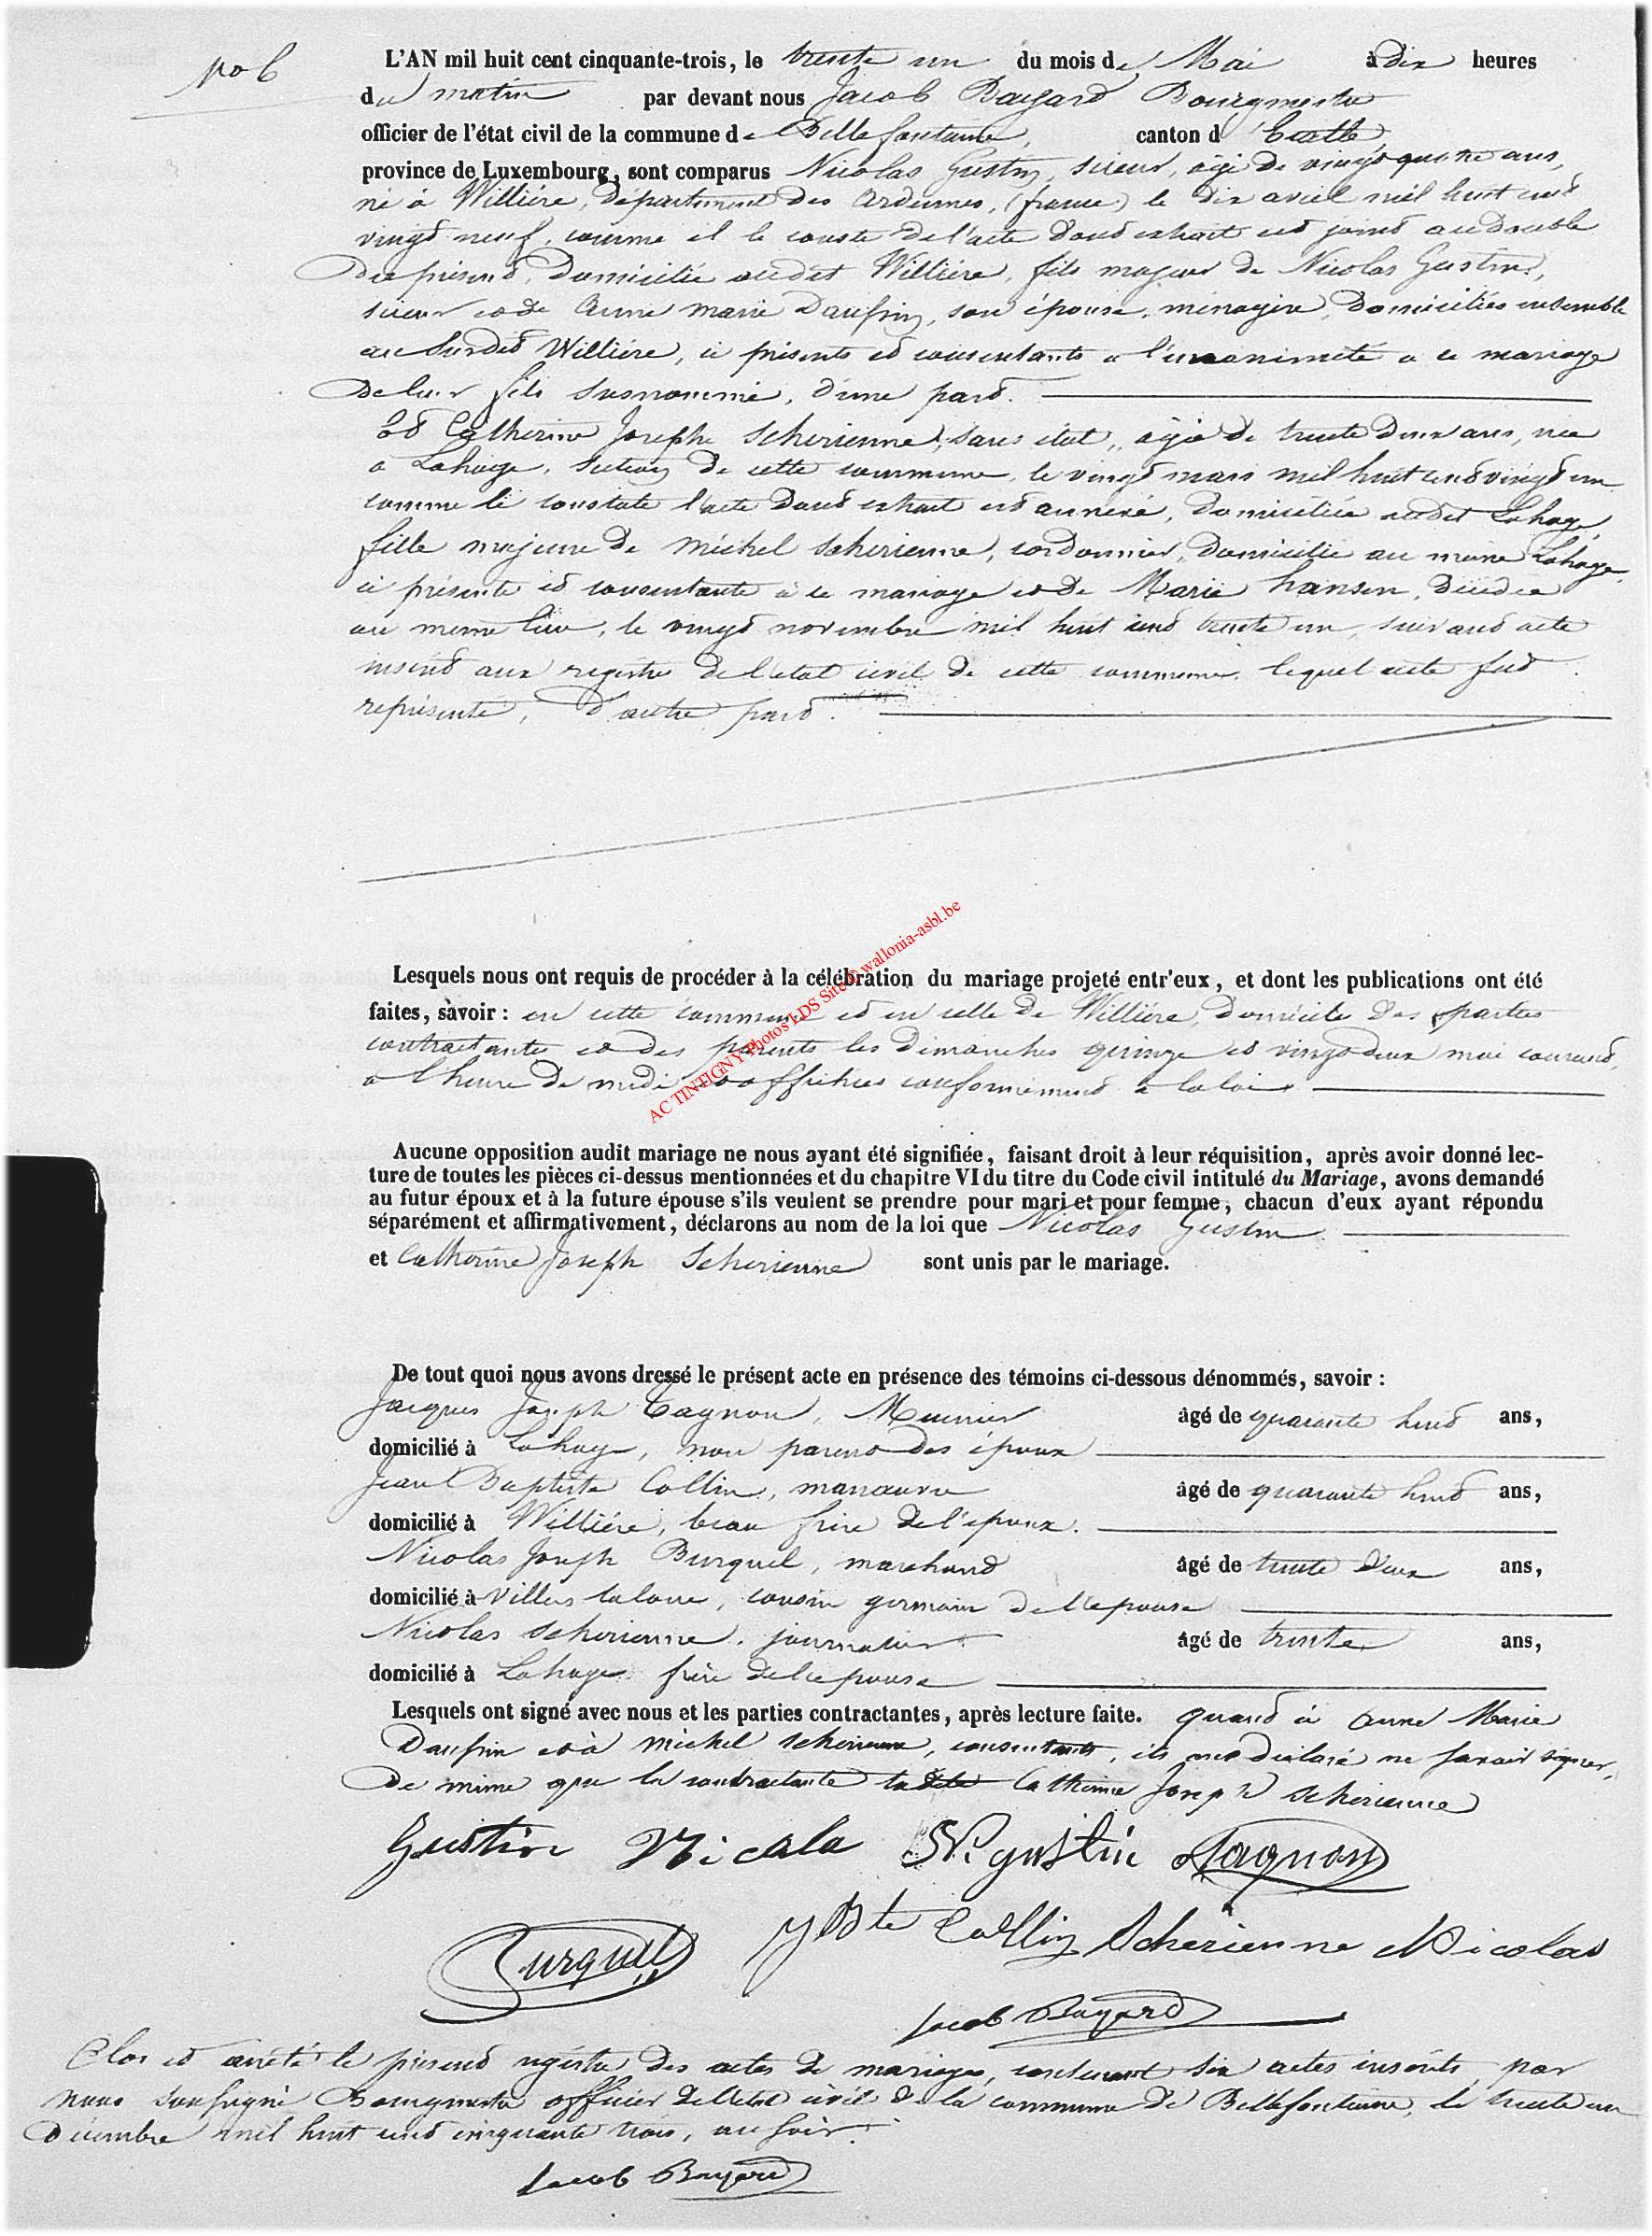 No 6
L'AN mil huit cent cinquante-trois, le trente un du mois de Mai à dix heures
du matin par devant nous Jacob Bayard Bourgmestre
officier de l'état civil de la commune de Bellefontaine, canton d'Etalle,
province de Luxembourg, sont comparus Nicolas Gustin, scieur, âgé de vingt quatre ans,
né à Williére, département des Ardennes, (france) le dix avril mil huit cent
vingt neuf, comme il le conste de l'acte dont extrait est joint au double
du présent, domicilié audit Williére, fils majeur de Nicolas Gustin,
scieur et de Anne marie Daufin, son épouse, ménagère, domiciliés ensemble
au susdit Williére, ci présents et consentants a l'unanimité a ce mariage
de leur fils susnommé, d'une part.
Et Catherine Joseph Scherienne, sans état, agée de trente deux ans, née
a Lahage, section de cette commune, le vingt mars mil huit cent vingt un
comme le constate l'acte dont extrait est annexé, domiciliée audit Lahage,
fille majeure de Michel Scherienne, cordonnier, domicilié au même Lahage,
ci présente et consentante à ce mariage et de Marie hansen, décédée
au meme lieu, le vingt novembre mil huit cent trente un, suivant acte
inscrit aux registres de l'etat civil de cette commune, lequel acte fut
représenté, d'autre part.
Lesquels nous ont requis de procéder à la célébration du mariage projeté entr'eux, et dont les publications ont été
faites, savoir : en cette commune et en celle de Williére, domicile des parties
contractantes et des parents les dimanches quinze et vingt deux mai courant,
a l'heure de midi et affichées conformément a la loi.
AC TINTIGNY Photos LDS Site © wallonia-asbl.be
Aucune opposition audit mariage ne nous ayant été signifiée, faisant droit à leur réquisition, après avoir donné lec-
ture de toutes les pièces ci-dessus mentionnées et du chapitre VI du titre du Code civil intitulé du Mariage, avons demandé
au futur époux et à la future épouse s'ils veulent se prendre pour mari et pour femme, chacun d'eux ayant répondu
séparément et affirmativement, déclarons au nom de la loi que Nicolas Gustin
et Catherine Joseph Scherienne sont unis par le mariage.
De tout quoi nous avons dressé le présent acte en présence des témoins ci-dessous dénommés, savoir :
Jacques Joseph Tagnon, Meunier âgé de quarante huit ans,
domicilié à Lahage, non parent des époux
Jean Baptiste Collin, manœuvre âgé de quarante huit ans,
domicilié à Williére, beau frère de l'époux.
Nicolas Joseph Burquel, marchand âgé de trente deux ans,
domicilié à Villers laloue, cousin germain de l'epouse
Nicolas Scherienne, journalier. âgé de trente ans,
domicilié à Lahage frère de l'epouse
Lesquels ont signé avec nous et les parties contractantes, après lecture faite. quand à Anne Marie
Daufin et à michel Scherienne, consentants, ils ont déclaré ne savoir signer,
de même que la contractante ladite Catherine Joseph Scherienne
Gustin Nicola N. gustin Tagnon
Burquel JBte Collin Scherienne Nicolas
Jacob Bayard
Clos et arrêté le présent régistre des actes de mariages, contenant six actes inscrits par
nous soussigné Bourgmestre officier de l'etat civil de la commune de Bellefontaine, le trente un
décembre mil huit cent cinquante trois, au soir.
Jacob Bayard